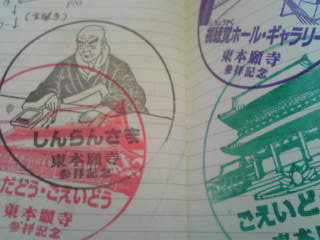 しんらんさま
東本願寺
参拝記念
だどう・ごえいどう
東本願寺
参拝記念
視聴覚ホール・ギャラリー
東本願寺
参拝記念
ごえいど
東本